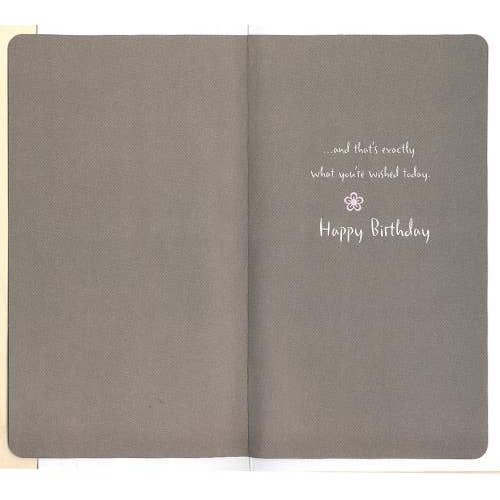 ...and that's exactly
what you're wished today.
Happy Birthday